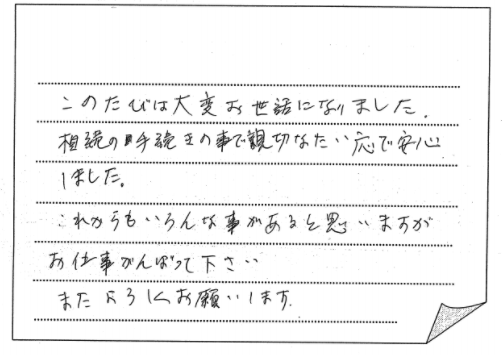 このたびは大変お世話になりました。
相続の手続きの事で親切なたい応で安心
しました。
これからもいろんな事があると思いますが
お仕事がんばって下さい
またよろしくお願いします。